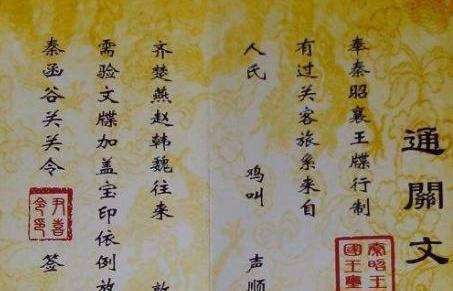 通關文
奉秦昭襄王牒行制
有过关客旅系来自
人氏 鸡叫 声顺
齐楚燕赵韩魏往来
需验文牒加盖宝印依例放
秦函谷关关令 签
尹喜令印
秦昭王國王